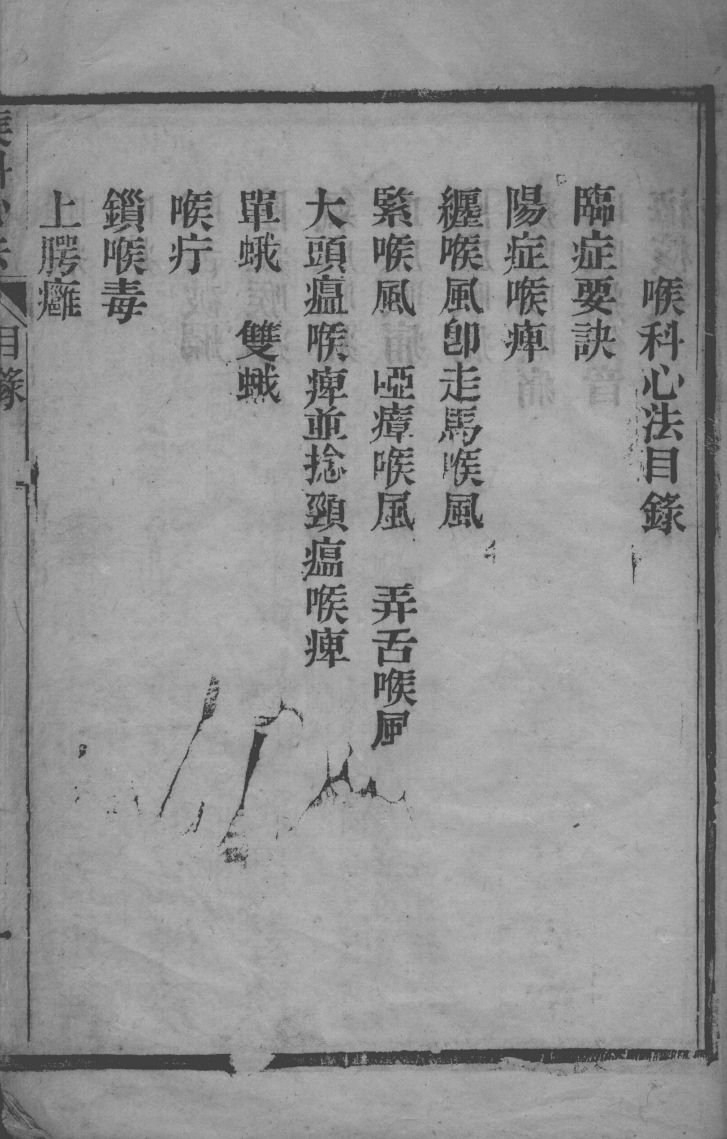 喉科心法目錄
臨症要訣
陽症喉痺
纏喉風卽走馬喉風
緊喉風 啞瘴喉風 弄舌喉風
大頭瘟喉痺並捻頸瘟喉痺
單蛾 雙蛾
喉疔
鎖喉毒
上腭癰
喉科心法 目錄 一